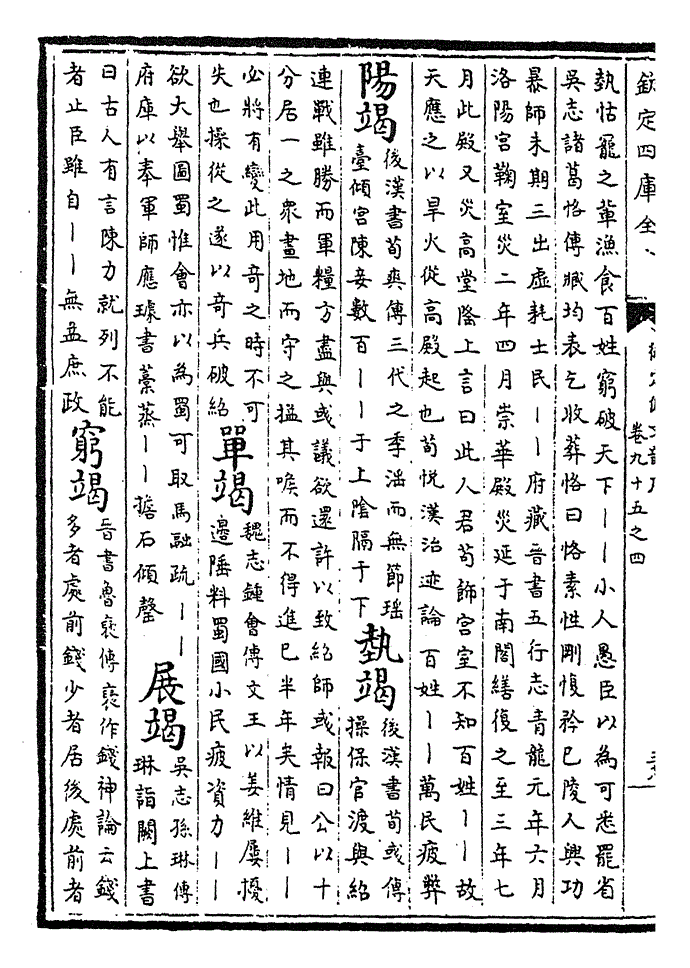 欽定四庫全
卷九十五之四
埶怙寵之輩漁食百姓窮破天下丨丨小人愚臣以為可悉罷省
吳志諸葛恪傳臧均表乞收葬恪曰恪素性剛愎矜己陵人興功
暴師未期三出虛耗士民丨丨府藏晉書五行志青龍元年六月
洛陽宮鞠室災二年四月崇華殿災延于南閣繕復之至三年七
月此殿又災高堂隆上言曰此人君苟飾宮室不知百姓丨丨故
天應之以旱火從高殿起也荀悅漢治迹論百姓丨丨萬民疲弊
陽竭
後漢書荀爽傳三代之季淫而無節瑤
臺傾宮陳妾數百丨丨于上陰隔于下
埶竭
後漢書荀彧傳
操保官渡與紹
連戰雖勝而軍糧方盡與彧議欲還許以致紹師彧報曰公以十
分居一之衆畫地而守之搤其喉而不得進已半年矣情見丨丨
必將有變此用奇之時不可
失也操從之遂以奇兵破紹
單竭
魏志鍾會傳文王以姜維屢擾
邊陲料蜀國小民疲資力丨丨
欲大舉圖蜀惟會亦以為蜀可取馬融疏丨丨
府庫以奉軍師應璩書藁蒸丨丨擔石傾罄
展竭
吳志孫琳傳
琳詣闕上書
曰古人有言陳力就列不能
者止臣雖自丨丨無益庶政
窮竭
晉書魯褒傳褒作錢神論云錢
多者處前錢少者居後處前者